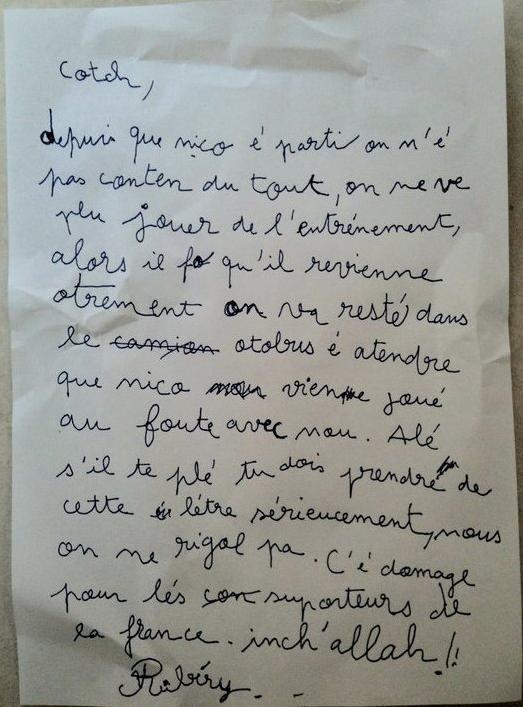 cotch,
depuis que nico é parti on n'é
pas conten du tout, on ne ve
plu jouer de l'entrénement,
alors il fo qu'il revienne
otrement on va resté dans
le camion otobus é atendre
que nico nou vienne joué
au foute avec nou. Alé
s'il te plé tu dois prendre de
cette létre sérieucement, nous
on ne rigol pa. C'é domage
pour lés con suporteurs de
la france. inch'allah !!
Ribéry. - -